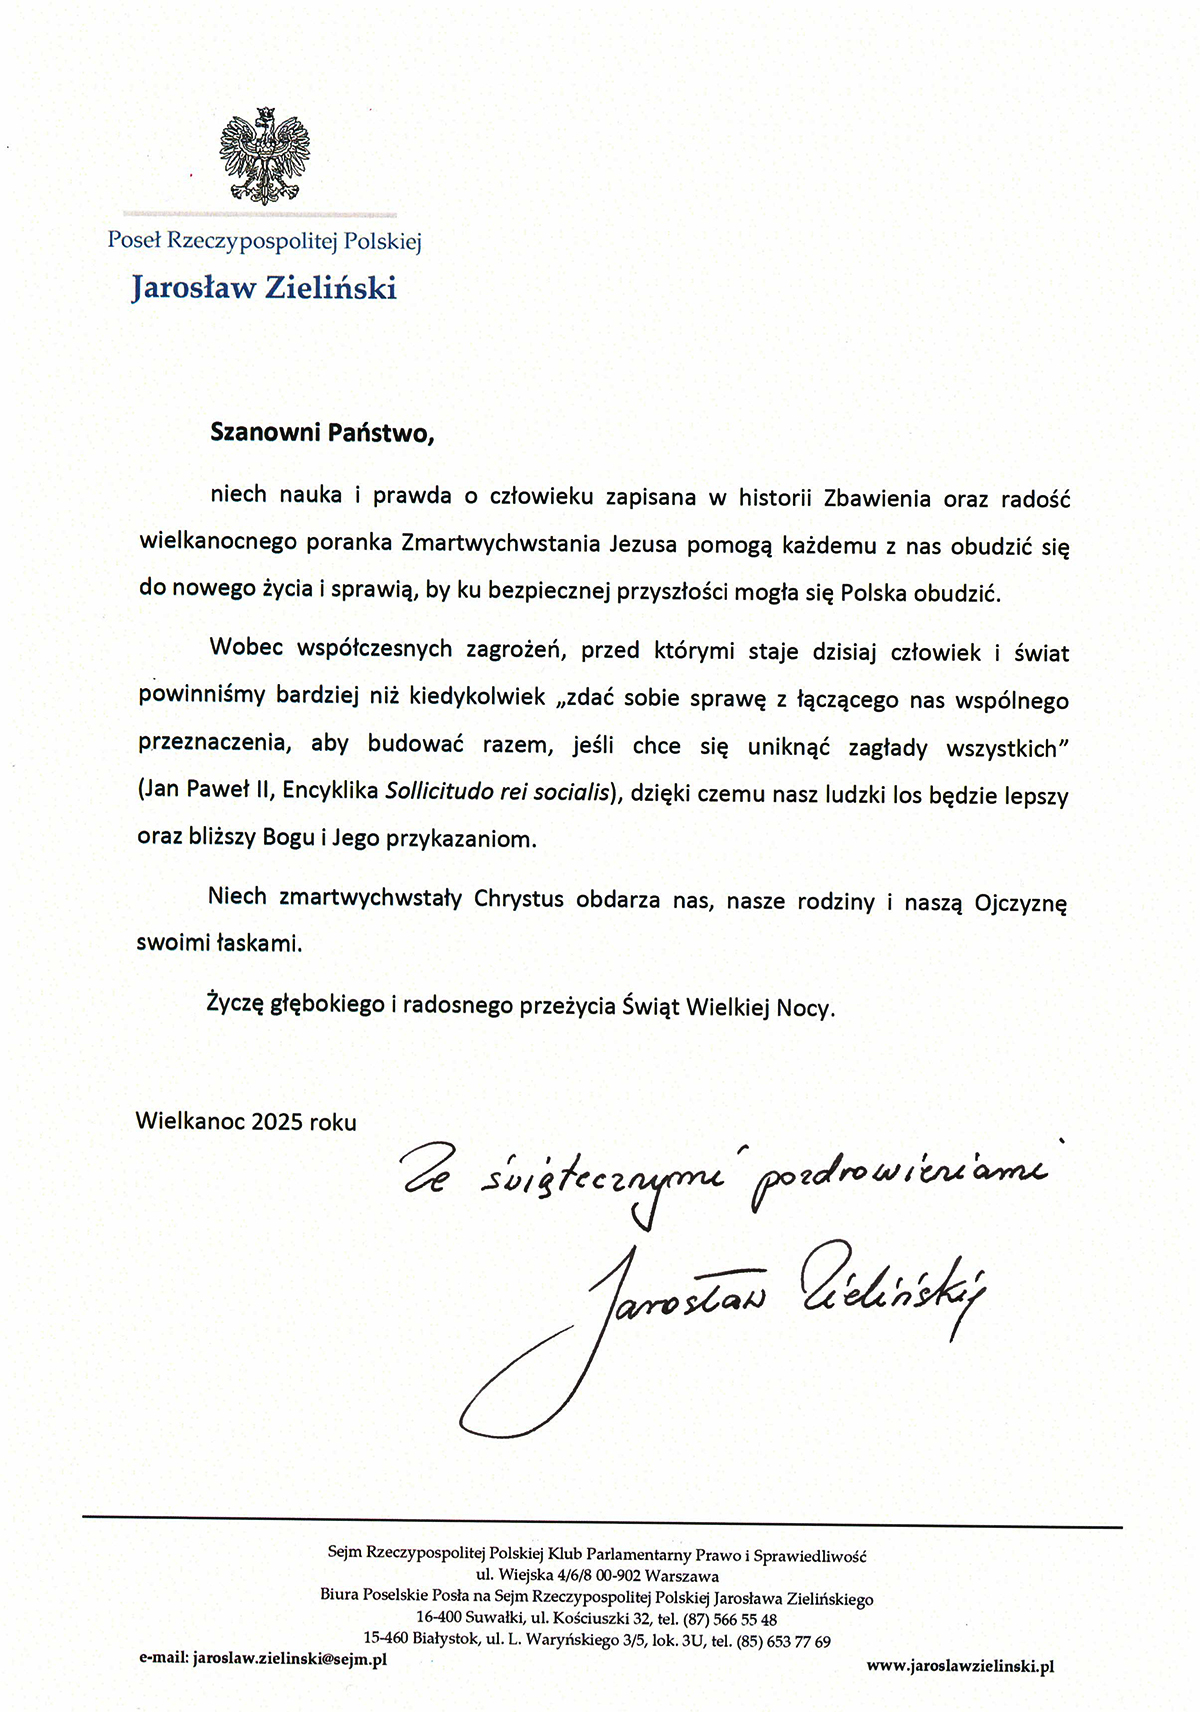 Poseł Rzeczypospolitej Polskiej
Jarosław Zieliński
Szanowni Państwo,
niech nauka i prawda o człowieku zapisana w historii Zbawienia oraz radość
wielkanocnego poranka Zmartwychwstania Jezusa pomogą każdemu z nas obudzić się
do nowego życia i sprawią, by ku bezpiecznej przyszłości mogła się Polska obudzić.
Wobec współczesnych zagrożeń, przed którymi staje dzisiaj człowiek i świat
powinniśmy bardziej niż kiedykolwiek „zdać sobie sprawę z łączącego nas wspólnego
przeznaczenia, aby budować razem, jeśli chce się uniknąć zagłady wszystkich”
(Jan Paweł II, Encyklika Sollicitudo rei socialis), dzięki czemu nasz ludzki los będzie lepszy
oraz bliższy Bogu i Jego przykazaniom.
Niech zmartwychwstały Chrystus obdarza nas, nasze rodziny i naszą Ojczyznę
swoimi łaskami.
Życzę głębokiego i radosnego przeżycia Świąt Wielkiej Nocy.
Wielkanoc 2025 roku
Ze świątecznymi pozdrowieniami
Jarosław Zieliński
Sejm Rzeczypospolitej Polskiej Klub Parlamentarny Prawo i Sprawiedliwość
ul. Wiejska 4/6/8 00-902 Warszawa
Biura Poselskie Posła na Sejm Rzeczypospolitej Polskiej Jarosława Zielińskiego
16-400 Suwałki, ul. Kościuszki 32, tel. (87) 566 55 48
15-460 Białystok, ul. L. Waryńskiego 3/5, lok. 3U, tel. (85) 653 77 69
e-mail: jaroslaw.zielinski@sejm.pl
www.jaroslawzielinski.pl